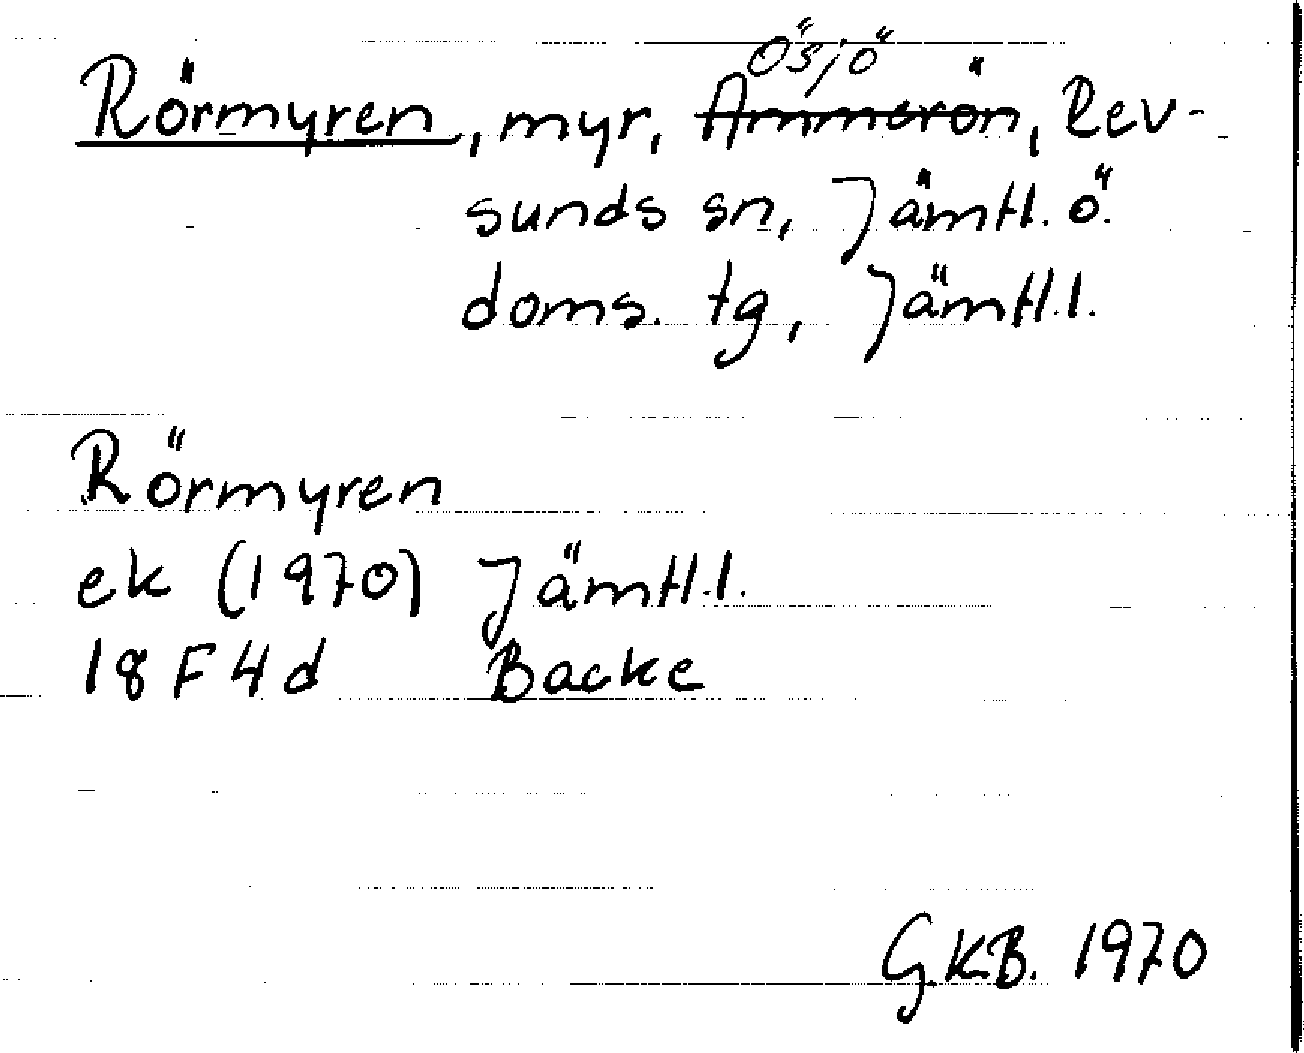 Ösjö
Rörmyren, myr, Ammerön, Rev-
sunds sn, Jämtl. ö.
doms. tg, Jämtl.l.
Rörmyren
ek (1970) Jämtl.l.
18F4d Backe
G.K.B. 1970